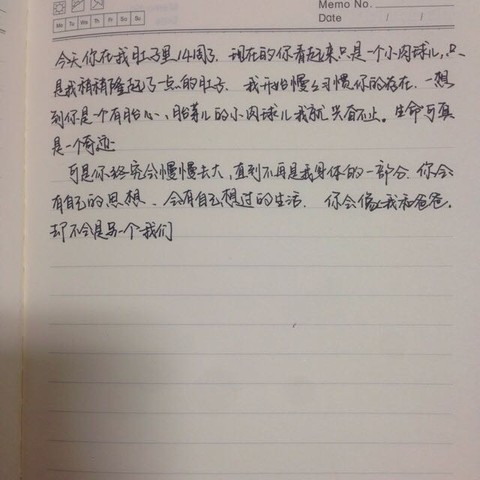 Memo No.
Mo Tu We Th Fr Sa Su
Date / /
今天你在我肚子里14周了. 现在的你看起来只是一个小肉球儿,只
是我稍稍隆起了一点的肚子. 我开始慢々习惯你的存在. 一想
到你是一个有胎心、胎芽儿的小肉球儿我就兴奋不止。生命可真
是一个奇迹
可是你终究会慢慢长大,直到不再是我身体的一部分. 你会
有自己的思想、会有自己想过的生活. 你会像我和爸爸.
却不会是另一个我们